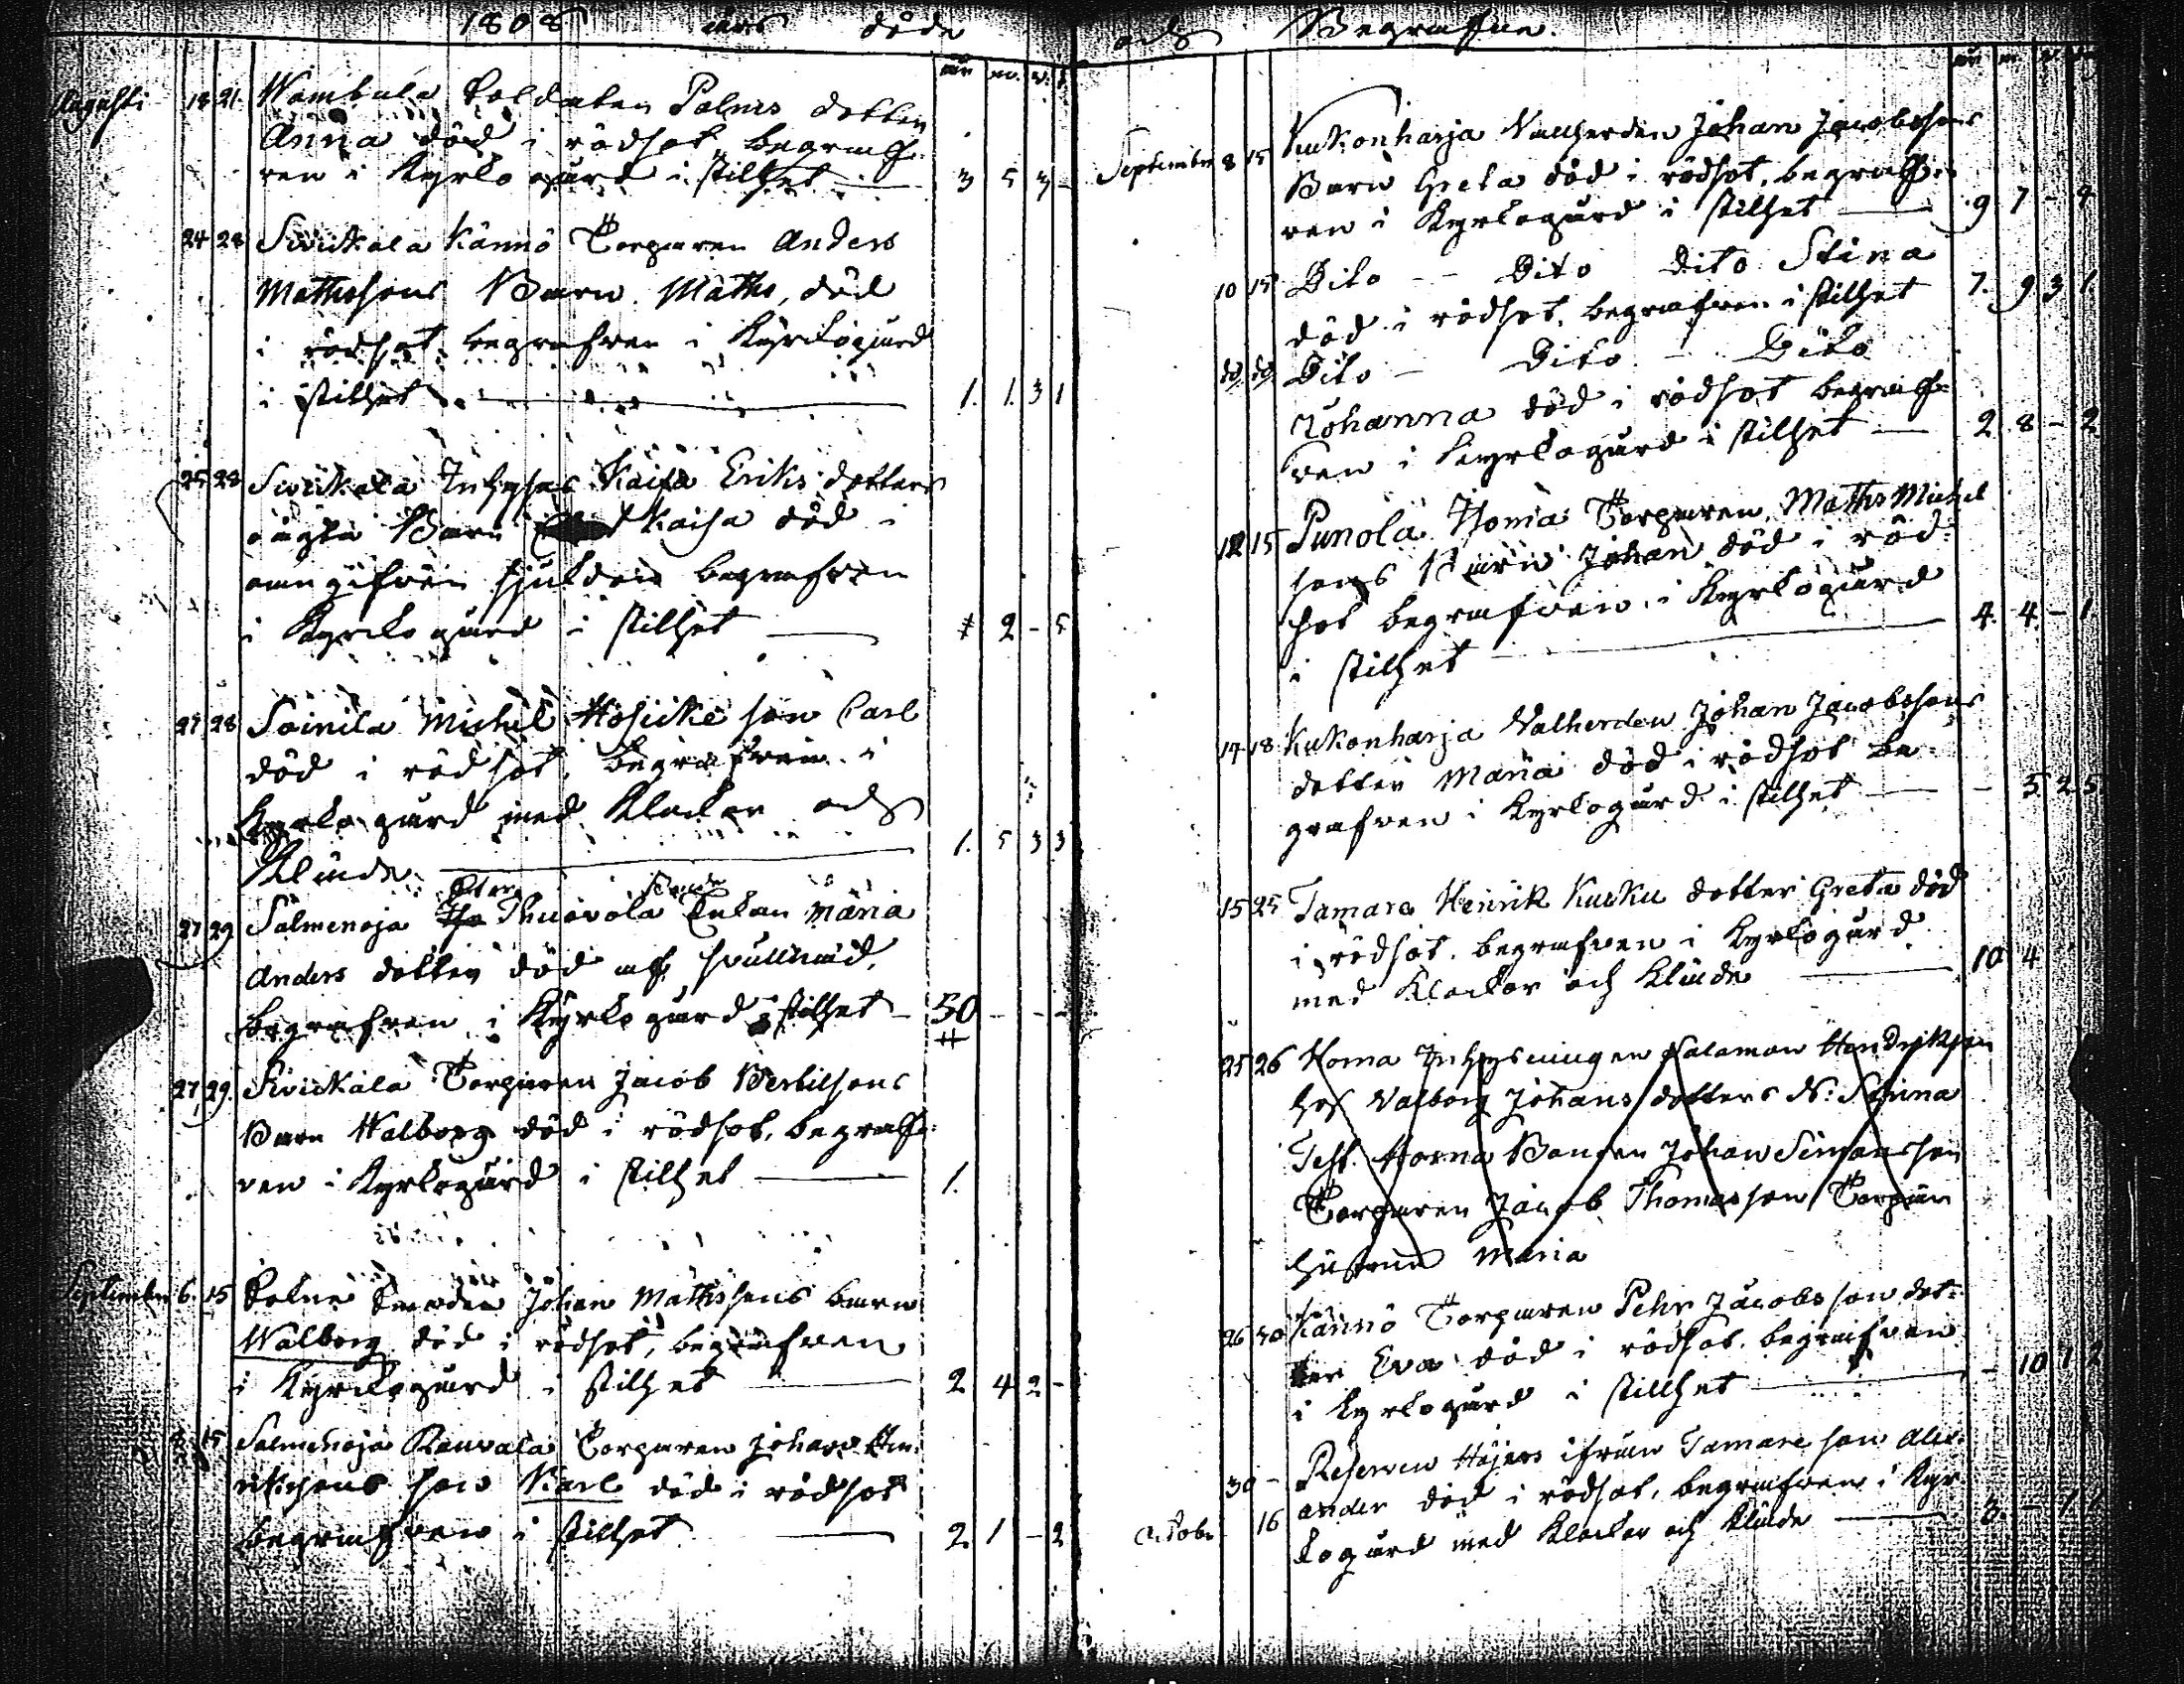 1808 åhrs döde
år m. v. d
Augusti 18 21. Wambula Soldaten Palms dotter
Anna död i rödsot, begraf-
ven i Kyrkogård i stilhet 3 5 3 -
24 28 Sivikkala Kännö Torparen Anders
Mathssons Barn Maths, död
i rödsot begrafven i Kyrkogård
i stilhet 1. 1. 3 1
25 28 Sivikkala Inhyses Kaisa Eriks dotters
oägta Barn Kaisa död i
oangifven sjukdom begrafven
i Kyrkogård i stilhet 2 - 5
27 28 Soinila Michel son Carl
död i rödsot, begrafven i
Kyrkogård med Klockor och
Klinde 1. 5 3 3
27 29 Salmenoja Thuovola Enkan Maria
Anders dotter död af
begrafven i Kyrkogård i stilhet - 50 - - -
27 29. Sivikkala Torparen Jacob Bertilsons
Barn Walborg död i rödsot, begraf-
ven i Kyrkogård i stilhet 1.
September 6. 15 Johan Mathssons barn
Walborg död i rödsot, begrafven
i Kyrkogård i stilhet 2 4 2 -
8 15 Salmenoja Rauvala Torparen Johan Hin-
rikssons son Karl död i rödsot
begrafven i stilhet 2 1 - 2
och Begrafne.
år m. v. d
September 8 15 Kukonharja Vallherden Johan Jacobssons
Barn Greta död i rödsot, begraf-
ven i Kyrkogård i stilhet 9 7 - 4
10 15 Dito - - Dito Dito Stina
död i rödsot, begrafven i stilhet 7. 9 3 1
do do Dito - Dito - Dito
Johanna död i rödsot begraf-
ven i Kyrkogård i stilhet 2 8 - 2
12 15 Punola Homa Torparen Maths Michel
sons Barn Johan död i röd-
sot begrafven i Kyrkogård
i stilhet 4. 4. - 1.
14 18 Kukonharja Valherden Johan Jacobssons
dotter Maria död i rödsot be-
grafven i Kyrkogård i stilhet - 5 2 5
15 25 Tamare Henrik Kucku dotter Greta död
i rödsot, begrafven i Kyrkogård
med Klockor och Klinde 10 4
25 26 Homa Inhysningen Salomon Hendrikson
hos Valborg Johans dotters N: Stina
Test. Horna Bonden Johan Simonsson
Torparen Jacob Thomasson Torpar
hustrun Maria
26 30 Kännö Torparen Pehr Jacobsson dot-
ter Eva död i rödsot, begrafven
i Kyrkogård i stillhet - 10 1 2
30 - Reserven Höjers ifrån Tamare son Alex-
Octobr 16 ander död i rödsot, begrafven i Kyr-
kogård med Klockor och Klinde 3. - 1 1